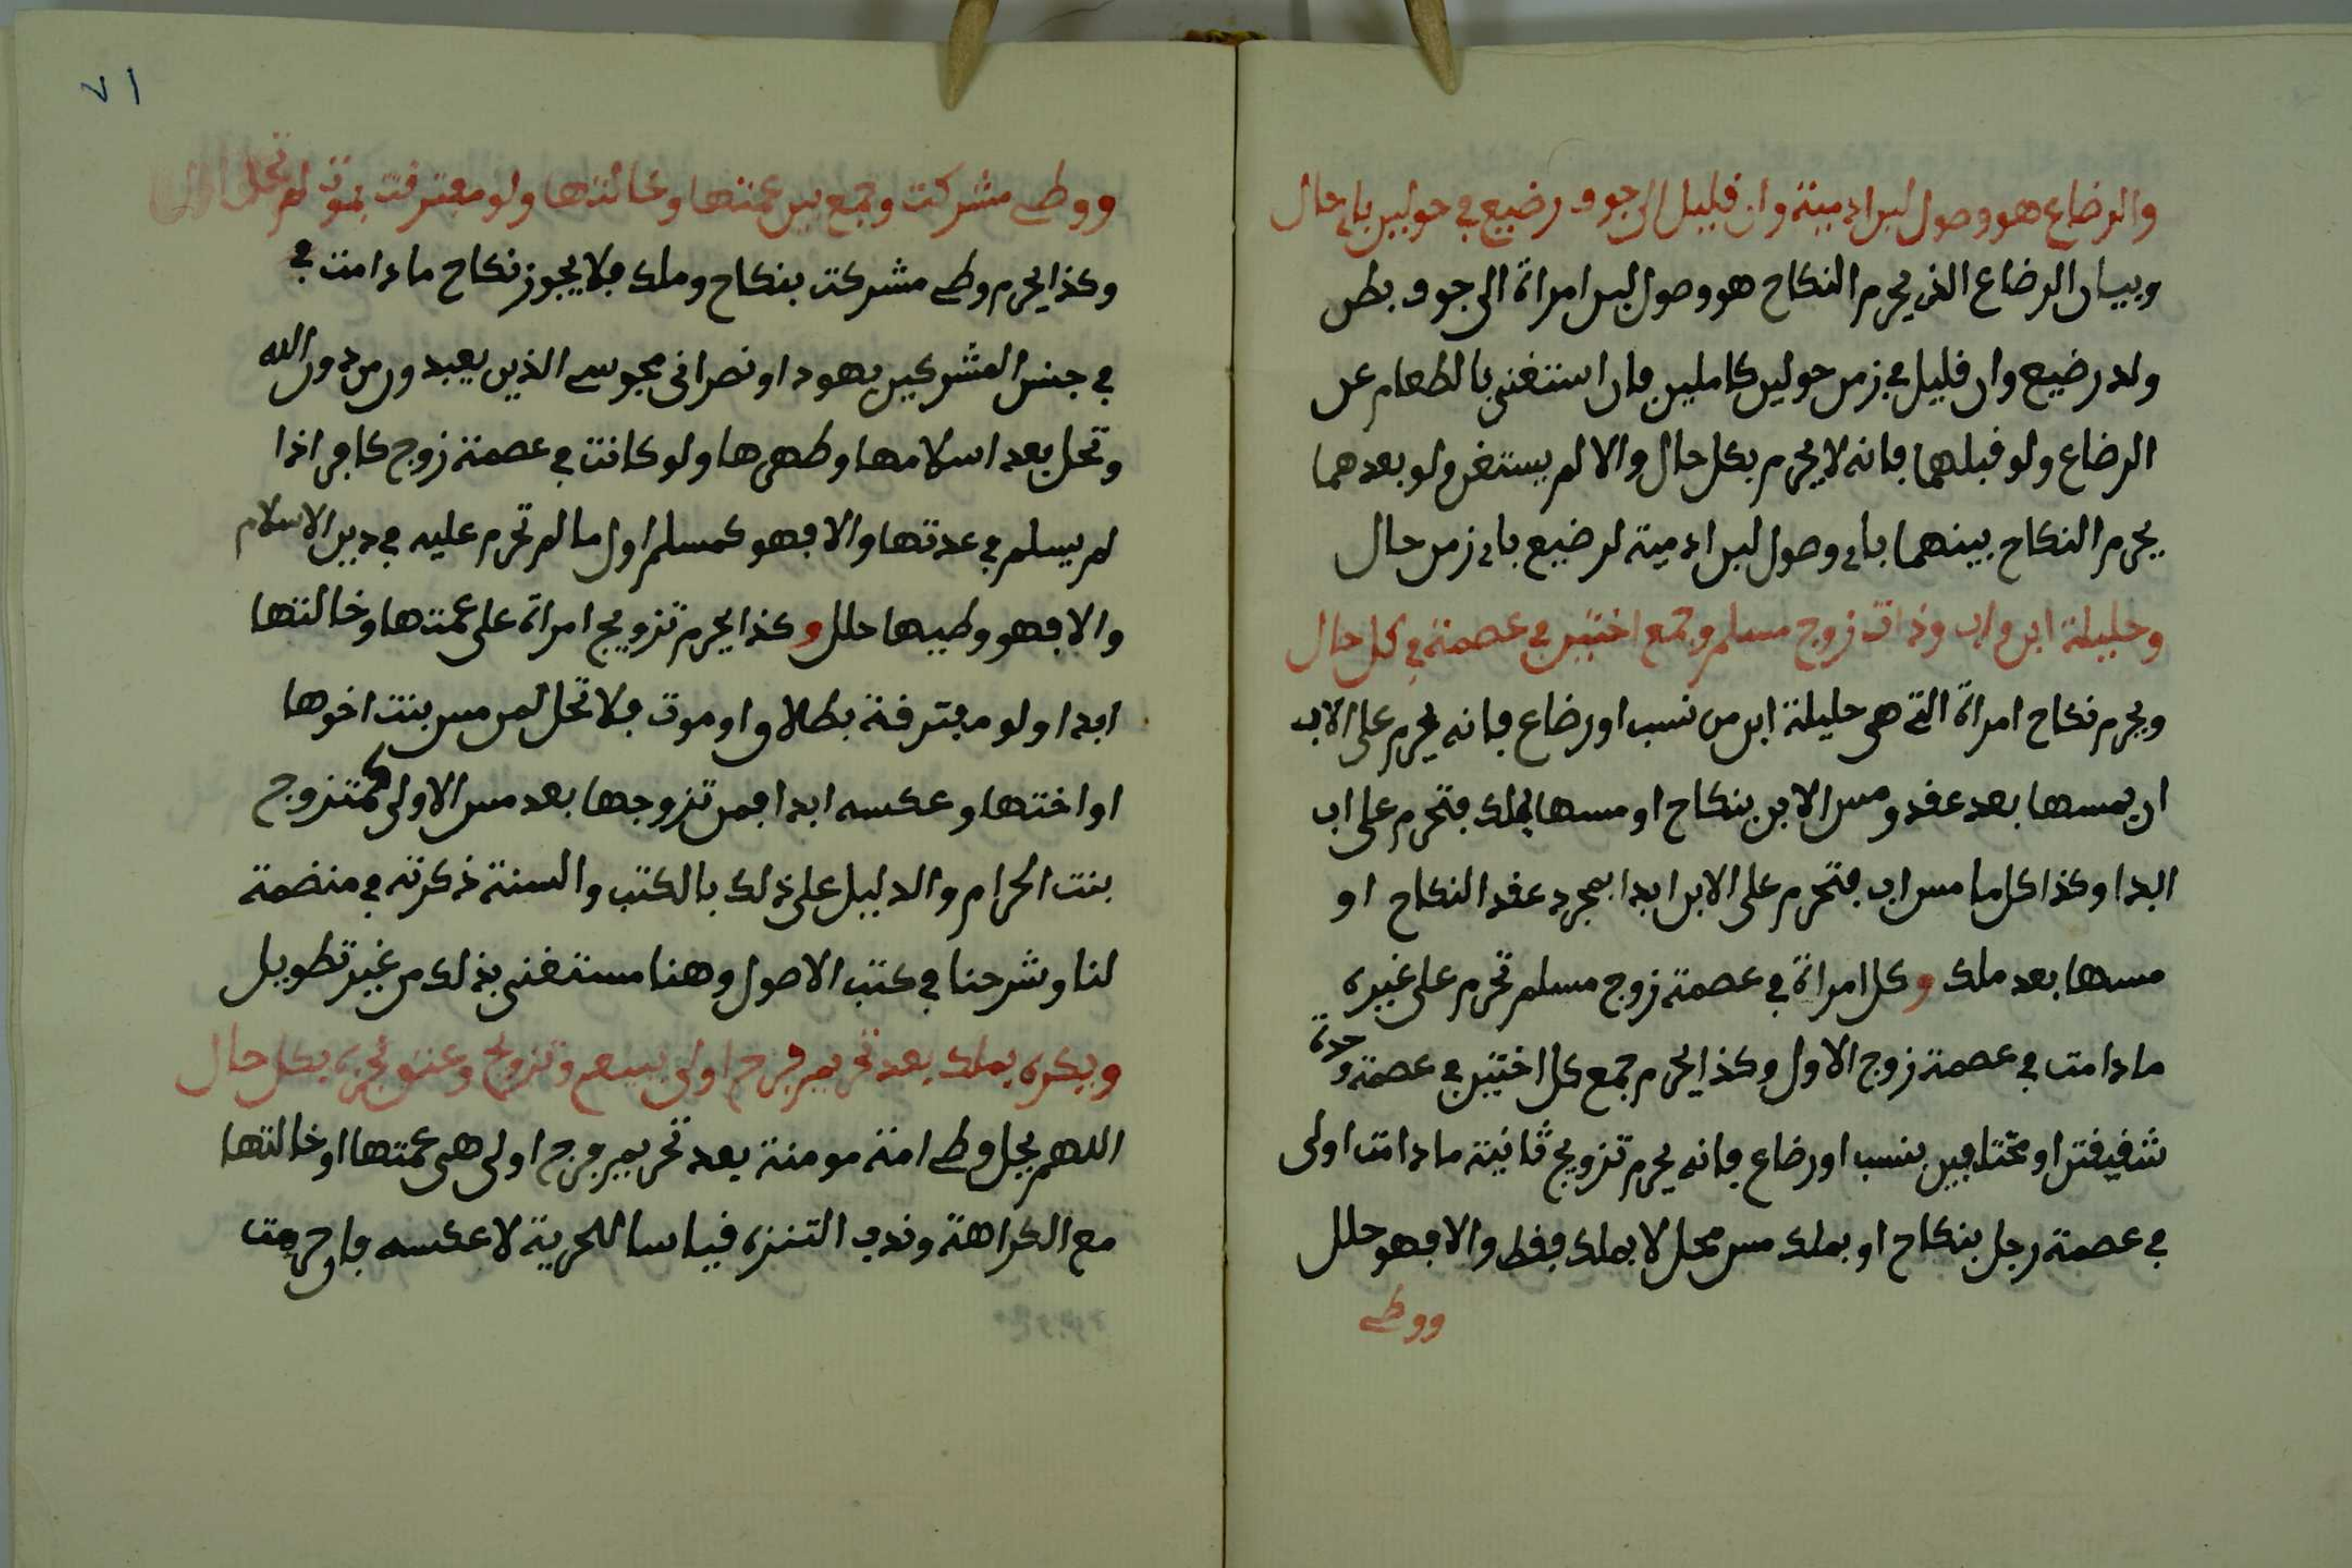 والرضاع هو وصول لبن ادمية وان قليل الى جوف رضيع في حولين باي حال
وبيان الرضاع الذي يحرم النكاح هو وصول لبن امراة الى جوف بطن
ولد رضيع وان قليل في زمن حولين كاملين فان استغنى بالطعام عن
الرضاع ولو قبلهما فانه لا يحرم بكل حال والا لم يستغن ولو بعدهما
يحرم النكاح بينهما باي وصول لبن ادمية لرضيع باي زمن حال
وحليلة ابن واب وذات زوج مسلم وجمع اختين في عصمة في كل حال
ويحرم نكاح امراة التي هي حليلة ابن من نسب او رضاع فانه يحرم على الاب
ان يمسها بعد عقد ومس الابن بنكاح او مسها بملك فتحرم على اب
ابدا وكذا كل ما مس اب فتحرم على الابن ابدا بمجرد عقد النكاح او
مسها بعد ملك وكل امراة في عصمة زوج مسلم تحرم على غيره
ما دامت في عصمة زوج الاول وكذا يحرم جمع كل اختين في عصمة وحدة
شقيقتن او مختلفين بنسب او رضاع فانه يحرم تزويج ثانية ما دامت اولى
في عصمة رجل بنكاح او بملك مس محل لا بملك فقط والا فهو حلل
ووطء
٧١
ووطء مشركت وجمع بين عمتها وخالتها ولو مفترقت بموت لم تحل
وكذا يحرم وطء مشركت بنكاح وملك فلا يجوز نكاح ما دامت في
في جنس المشركين يهود او نصرانى مجوسي الذين يعبدون من دون الله
وتحل بعد اسلامها وطهرها ولو كانت في عصمة زوج كافر اذا
لم يسلم في عدتها والا فهو كمسلم اول ما لم تحرم عليه في دين الاسلام
والا فهو وطيها حلل وكذا يحرم تزويج امراة على عمتها وخالتها
ابدا ولو مفترقة بطلاق او موت فلا تحل لمن مس بنت اخوها
او اختها وعكسه ابدا فمن تزوجها بعد مس الاولى كمتزوج
بنت الحرام والدليل على ذلك بالكتب والسنة ذكرته في منضمة
لنا وشرحنا في كتب الاصول وهنا مستغنى بذلك من غير تطويل
ويكره بملك بعد تحريم فرج اولى ببيع وتزويج وعتق بحرية بكل حال
اللهم يحل وطء امة مومنة بعد تحريم فرج اولى هي عمتها او خالتها
مع الكراهة وندب التنزه قياسا للحرية لا عكسه فان حرمت